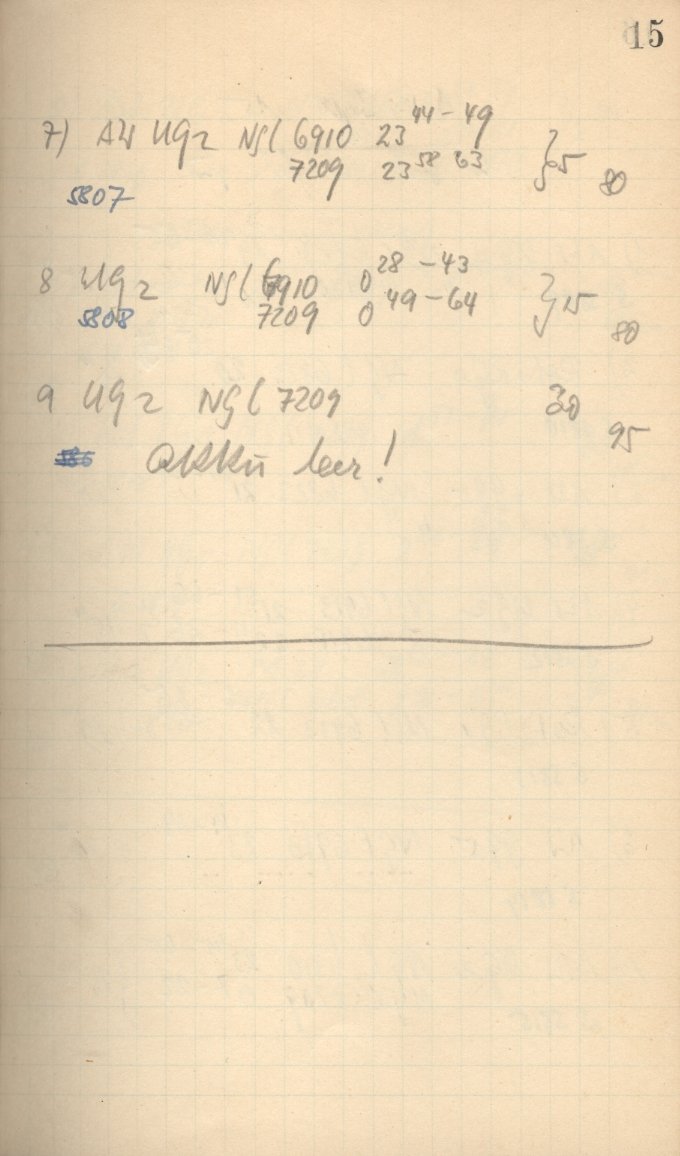 15
7) AW UG2 NGC 6910 23 44-49 } 5
7209 23 58 63 80
5807
8 UG2 NGC 6910 0 28-43 } 15
5808 7209 0 49-64 80
9 UG2 NGC 7209 30
95
Akku leer!